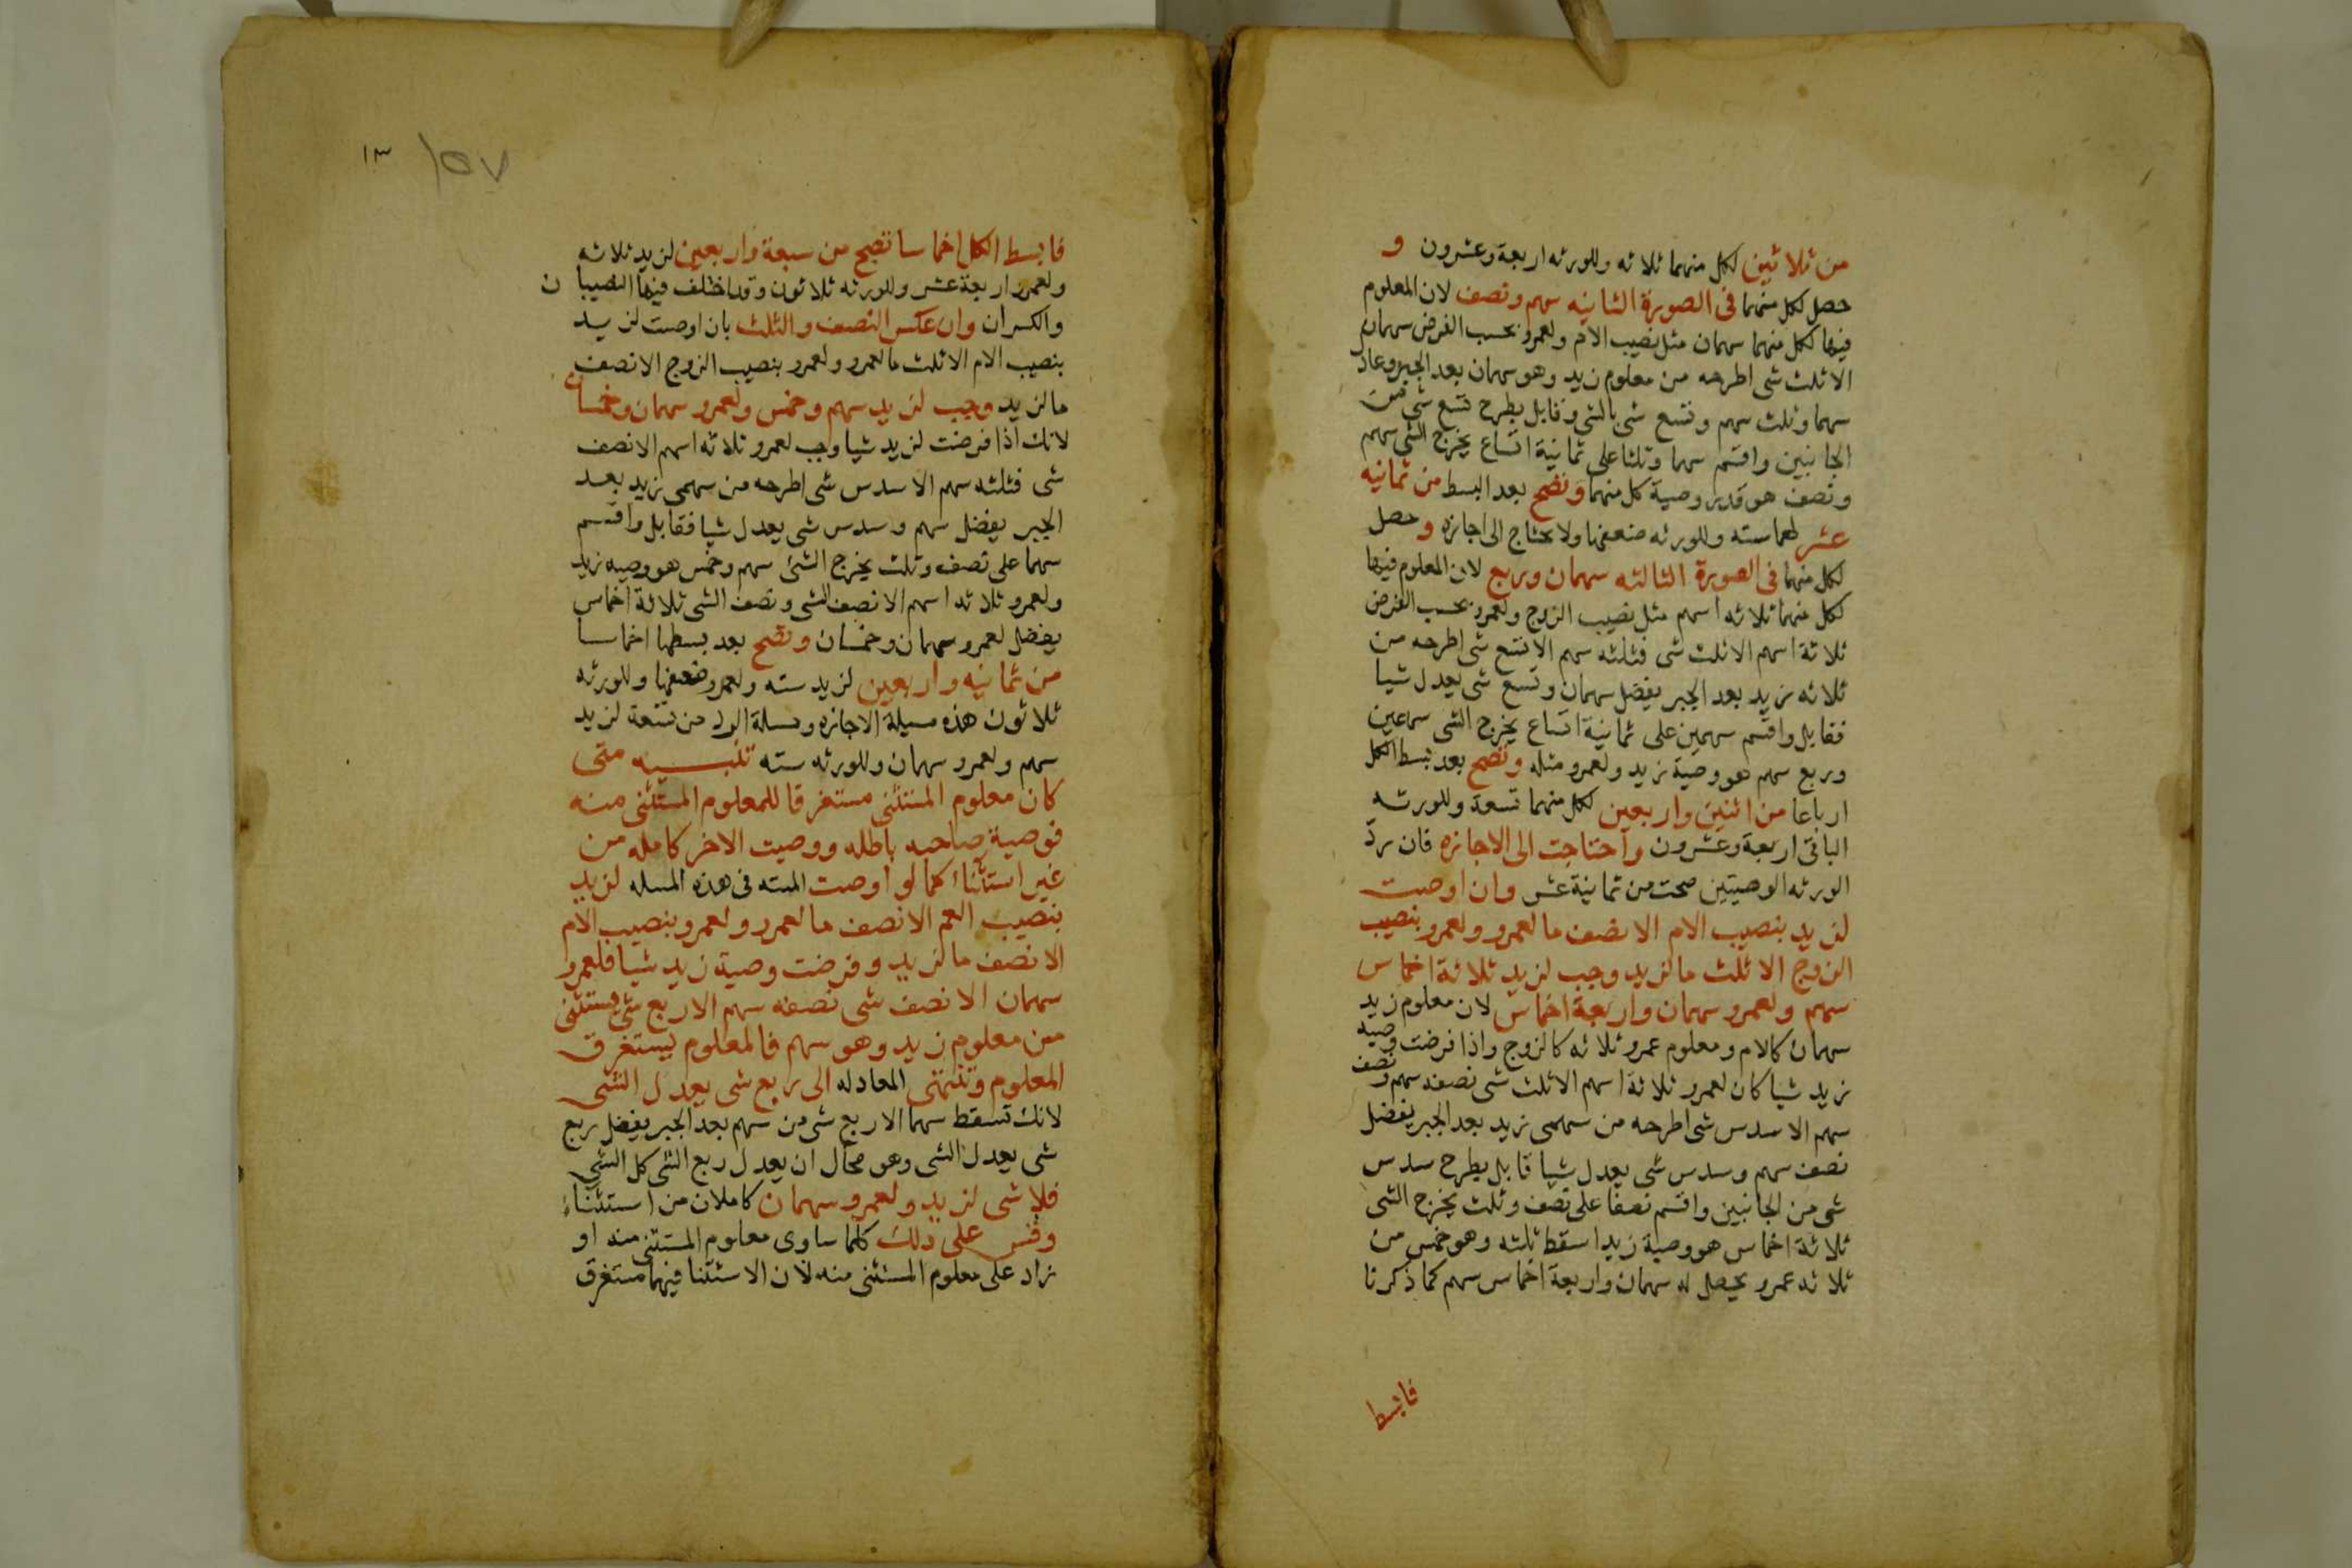 من ثلاثين لكل منهما ثلاثه وللورثه اربعة وعشرون و
حصل لكل منهما فى الصورة الثانيه سهم ونصف لان المعلوم
فيها لكل منهما سهمان مثل نصيب الام ولعمرو بحسب الفرض سهمان
الا ثلث شى اطرحه من معلوم زيد وهو سهمان بعد الجبر وعاد
سهما وثلث سهم وتسع شى بالشى وقابل بطرح تسع شى من
الجانبين واقسم سهما وثلثا على ثمانية اتساع يخرج الشى سهم
ونصف هو قدر وصية كل منهما وتصح بعد البسط من ثمانيه
عشر لهما سته وللورثه ضعفها ولا يحتاج الى اجازه و حصل
لكل منهما فى الصورة الثالثه سهمان وربع لان المعلوم فيها
لكل منهما ثلاثه اسهم مثل نصيب الزوج ولعمرو بحسب الفرض
ثلاثة اسهم الا ثلث شى فثلثه سهم الا تسع شى اطرحه من
ثلاثه زيد بعد الجبر يفضل سهمان وتسع شى يعدل شيا
فقابل واقسم سهمين على ثمانية اتساع يخرج الشى سهمين
وربع سهم هو وصية زيد ولعمرو مثله وتصح بعد بسط الكل
ارباعا من اثنين واربعين لكل منهما تسعة وللورثه
الباقى اربعة وعشرون واحتاجت الى الاجازه فان رد
الورثه الوصيتين صحت من ثمانية عشر وان اوصت
لزيد بنصيب الام الا نصف ما لعمرو ولعمرو بنصيب
الزوج الا ثلث ما لزيد وجب لزيد ثلاثة اخماس
سهم ولعمرو سهمان واربعة اخماس لان معلوم زيد
سهمان كالام ومعلوم عمرو ثلاثه كالزوج واذا فرضت وصيه
زيد شيا كان لعمرو ثلاثة اسهم الا ثلث شى نصفه سهم ونصف
سهم الا سدس شى اطرحه من سهمى زيد بعد الجبر يفضل
نصف سهم وسدس شى يعدل شيا قابل بطرح سدس
شى من الجانبين واقسم نصفا على نصف وثلث يخرج الشى
ثلاثة اخماس هو وصية زيد اسقط ثلثه وهو خمس من
ثلاثه عمرو يحصل له سهمان واربعة اخماس سهم كما ذكرنا
فابسط
١٣ ١٥٧
فابسط الكل اخماسا تصح من سبعة واربعين لزيد ثلاثه
ولعمرو اربعة عشر وللورثه ثلاثون وقد اختلف فيها النصيبا ن
والكسران وان عكس النصف والثلث بان اوصت لزيد
بنصيب الام الا ثلث ما لعمرو ولعمرو بنصيب الزوج الا نصف
ما لزيد وجب لزيد سهم وخمس ولعمرو سهمان وخمسان
لانك اذا فرضت لزيد شيا وجب لعمرو ثلاثه اسهم الا نصف
شى فثلثه سهم الا سدس شى اطرحه من سهمى زيد بعد
الجبر يفضل سهم وسدس شى يعدل شيا فقابل واقسم
سهما على نصف وثلث يخرج الشئ سهم وخمس هو وصيه زيد
ولعمرو ثلاثه اسهم الا نصف الشى ونصف الشى ثلاثة اخماس
يفضل لعمرو سهمان وخمسان وتصح بعد بسطها اخماسا
من ثمانيه واربعين لزيد سته ولعمرو ضعفها وللورثه
ثلاثون هذه مسيلة الاجازه ومسلة الرد من تسعة لزيد
سهم ولعمرو سهمان وللورثه سته تنبيه متى
كان معلوم المستثنى مستغرقا للمعلوم المستثنى منه
فوصية صاحبه باطله ووصيت الاخر كامله من
غير استثناء كما لو اوصت الميته فى هذه المسله لزيد
بنصيب العم الا نصف ما لعمرو ولعمرو بنصيب الام
الا نصف ما لزيد وفرضت وصية زيد شيا فلعمرو
سهمان الا نصف شى نصفه سهم الا ربع شى يستثنى
من معلوم زيد وهو سهم فالمعلوم يستغرق
المعلوم وتنتهى المعادله الى ربع شى يعدل الشى
لانك تسقط سهما الا ربع شى من سهم بعد الجبر يفضل ربع
شى يعدل الشى وهو محال ان يعدل ربع الشى كل الشى
فلا شى لزيد ولعمرو سهمان كاملان من استثناء
وقس على ذلك كلما ساوى معلوم المستثنى منه او
زاد على معلوم المستثنى منه لان الاستثنا فيهما مستغرق